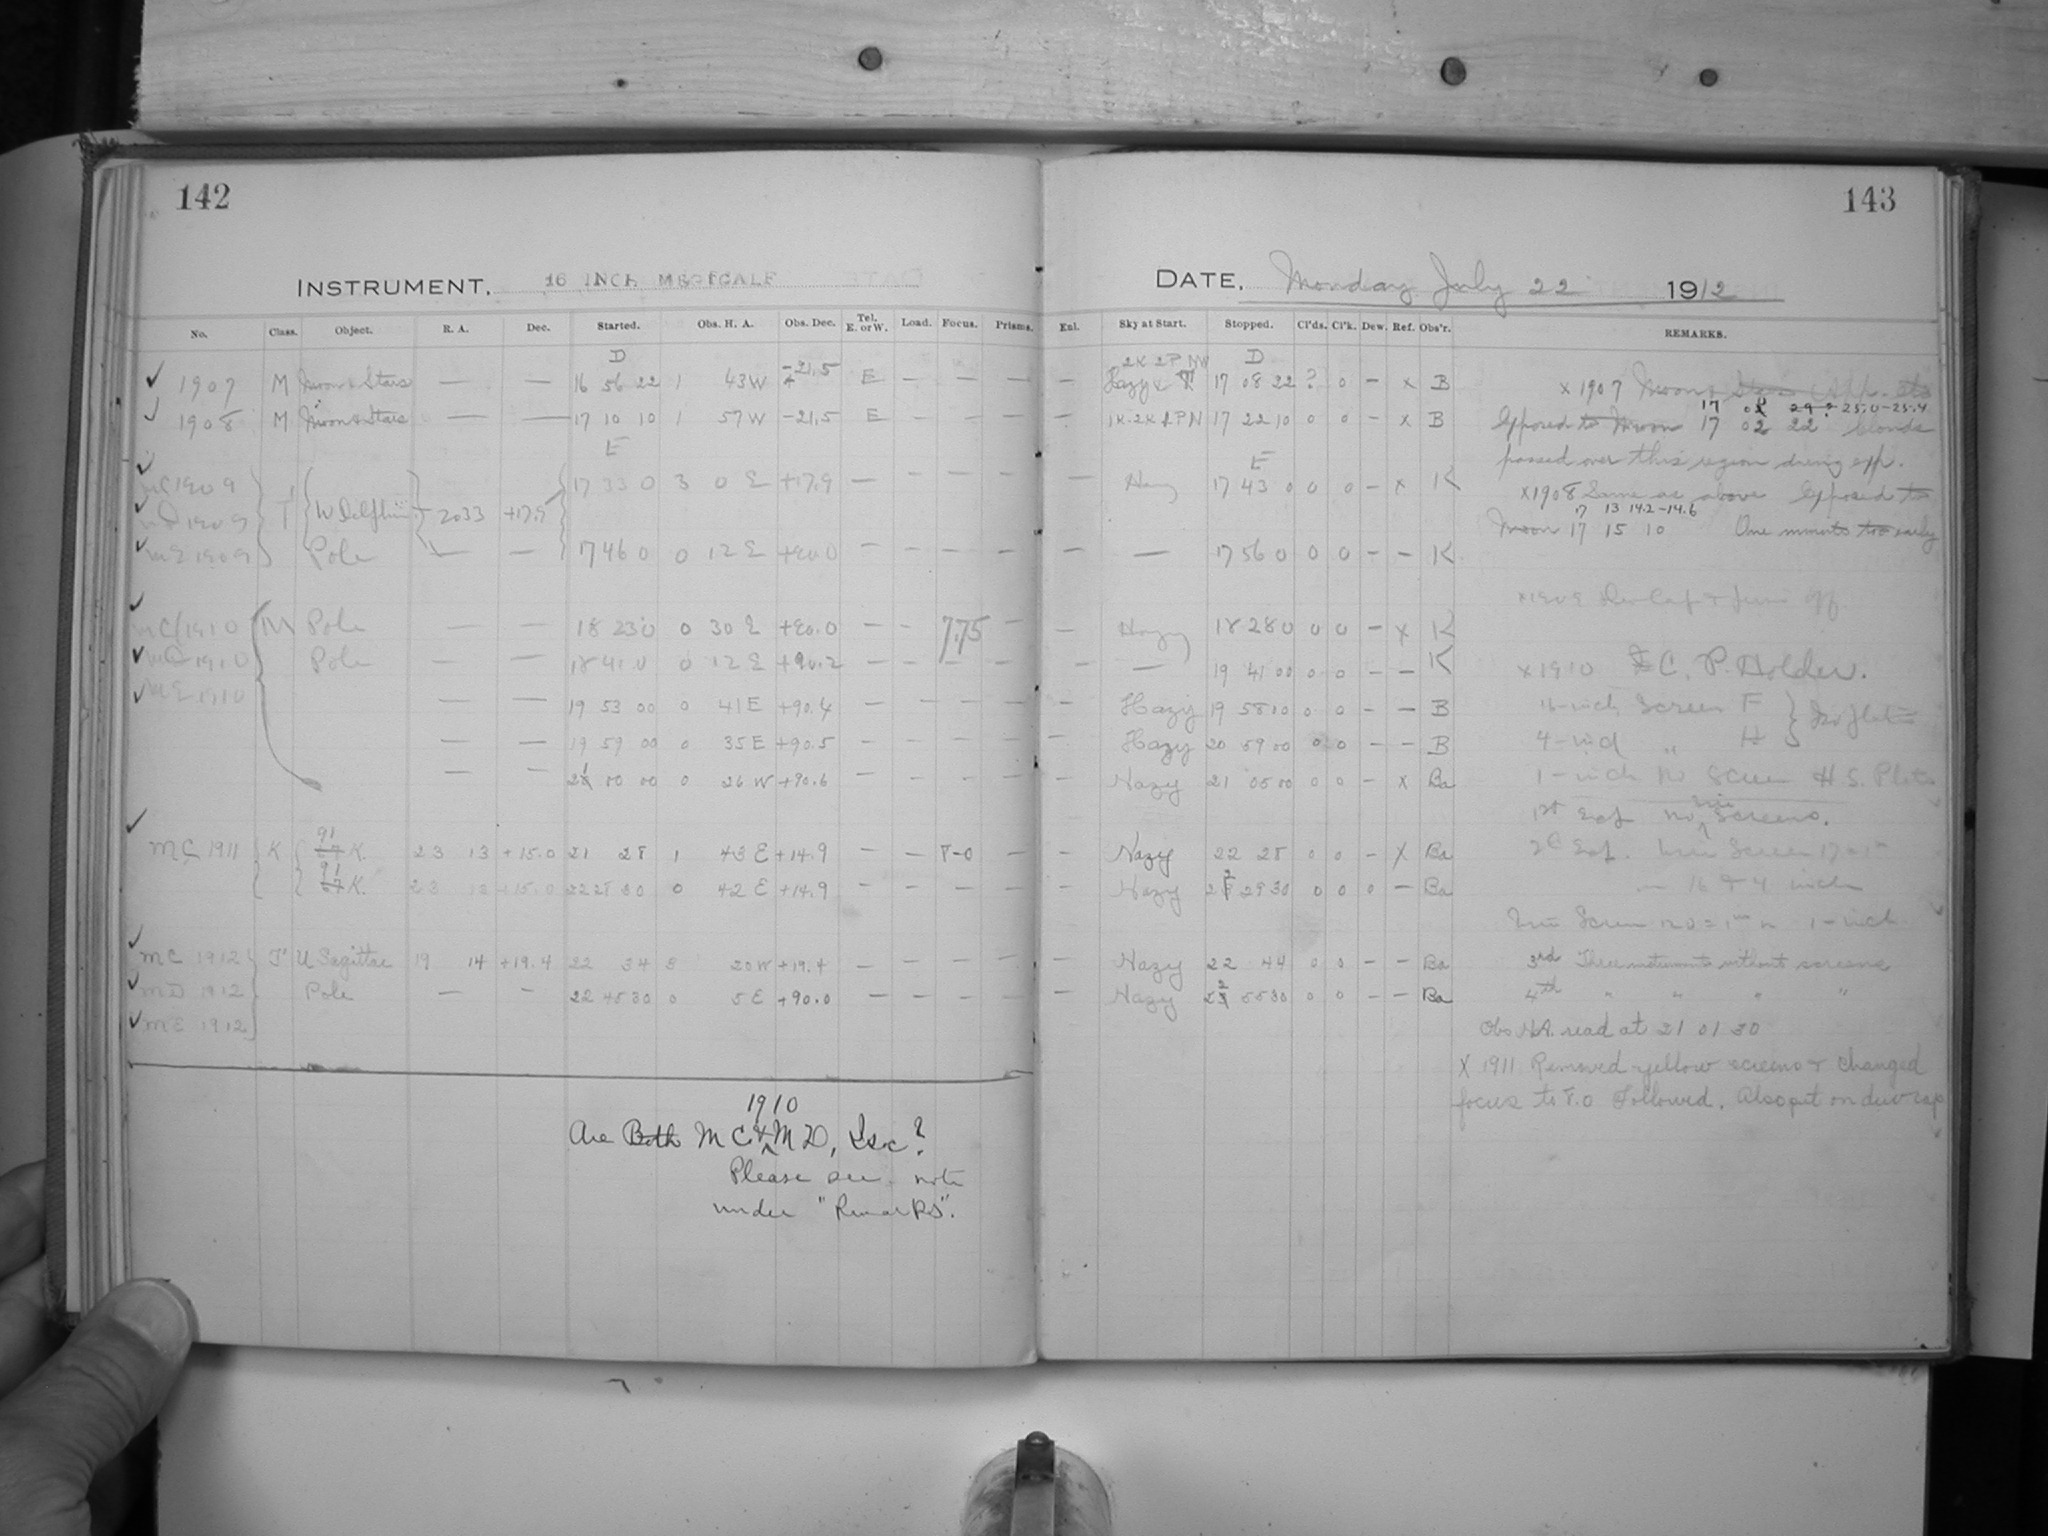 142
143
INSTRUMENT, 16 INCH METCALF
DATE, Monday July 22 1912
No. Class. Object. R. A. Dec. Started. Obs. H. A. Obs. Dec. Tel. E. or W. Load. Focus. Prisms. Exl. Sky at Start. Stopped. Cl'ds. Cl'k. Dew. Ref. Obs'r. REMARKS.
D
2K 2P NW D
1907 M Moon & Stars — — 16 56 22 1 43 W -21.5 E — — — — Hazy & 17 08 22 ? 0 — x B
1908 M Moon & Stars — — 17 10 10 1 57 W -21.5 E — — — — 1K-2K 2PN 17 22 10 0 0 — x B
E
E
MC 1909 17 33 0 3 0 E +17.9 — — — — — 17 43 0 0 0 — x K
MD 1909 T W Delphini 2033 +17.9
ME 1909 Pole — — 17 46 0 0 12 E +90.0 — — — — — — 17 56 0 0 0 — — K
MC 1910 M Pole — — 18 23 0 0 30 E +90.0 — — 7.75 — — Hazy 18 28 0 0 0 — x K
MD 1910 Pole — — 18 41 0 0 12 E +90.2 — — — — — — 19 41 00 0 0 — — K
ME 1910
— — 19 53 00 0 41 E +90.4 — — — — — Hazy 19 58 10 0 0 — — B
— — 19 59 00 0 35 E +90.5 — — — — — Hazy 20 59 00 0 0 — — B
— — 21 00 00 0 26 W +90.6 — — — — — Hazy 21 05 00 0 0 — x Ba
MC 1911 K 91 67 K. 23 13 +15.0 21 28 1 43 E +14.9 — — 8-0 — — Hazy 22 28 0 0 — x Ba
91 67 K. 23 13 +15.0 22 28 30 0 42 E +14.9 — — — — — Hazy 22 29 30 0 0 0 — Ba
MC 1912 T U Sagittae 19 14 +19.4 22 34 3 20 W +19.4 — — — — — Hazy 22 44 0 0 — — Ba
MD 1912 Pole — — 22 45 30 0 5 E +90.0 — — — — — Hazy 22 55 30 0 0 — — Ba
ME 1912
1910
Are Both MC & MD, Isoc?
Please see note
under "Remarks".
x 1907 Moon & Stars
17 02 29.? 25.0-25.4
Exposed to Moon 17 02 22 Clouds
passed over this region during exp.
x1908 Same as above Exposed to
17 13 14.2-14.6
Moon 17 15 10 One minute too early
x1909 Dew Cap &
x1910 C. P. Holder.
16-inch Screen F
4-inch " H
1-inch No Screen H S. Plate
1st Exp. no Screens.
2d Exp. Screen
on 16 & 4 inch
Screen on 1-inch
3rd Three instruments without screens
4th " " " "
Obs H.A. read at 21 01 30
X 1911 Removed yellow screens & changed
focus to 8.0 Followed. Also put on dew cap